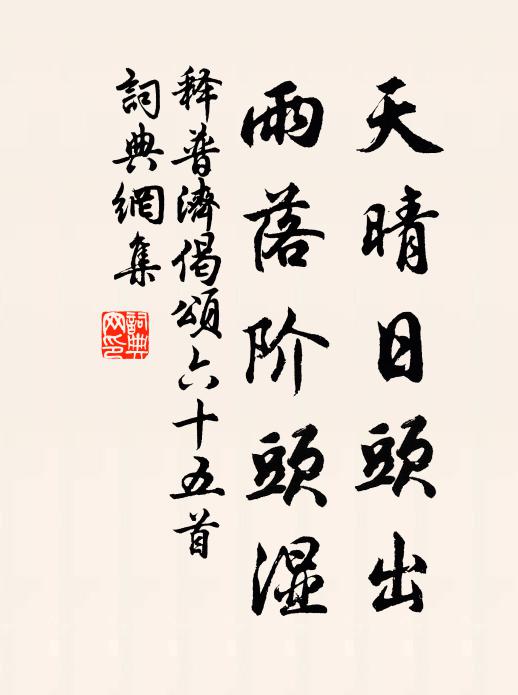 天晴日頭出
雨落阶頭湿
释普濟偈頌六十五首
詞典網集
詞典网印